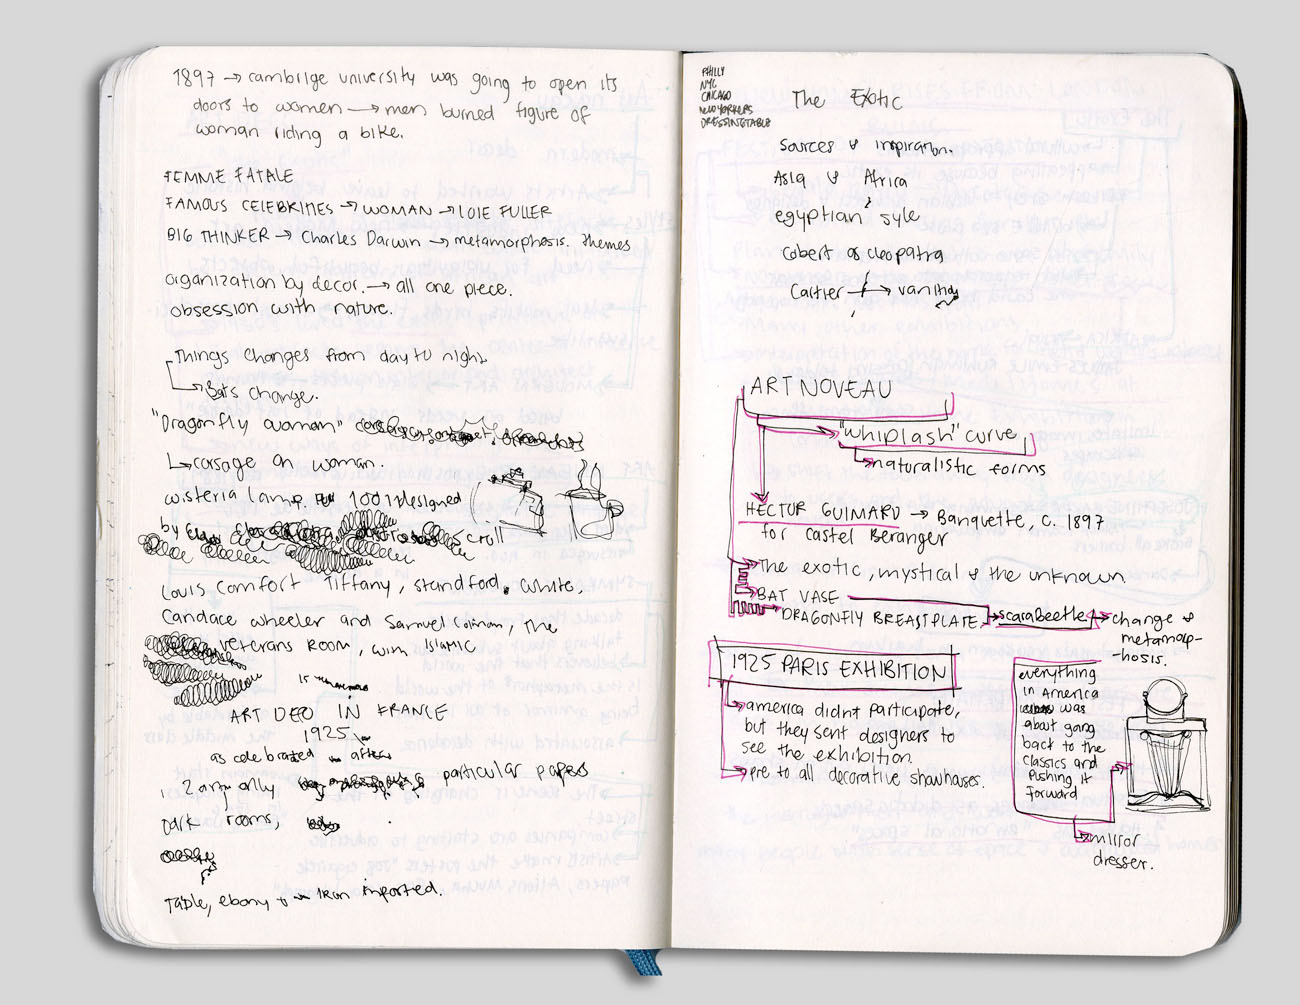 1897 → cambrige university was going to open its
doors to women → men burned figure of
woman riding a bike.
FEMME FATALE
FAMOUS CELEBRITIES → WOMAN → LOIE FULLER
BIG THINKER → Charles Darwin → metamorphosis. themes
organization by decor. → all one piece.
obsession with nature.
Things changes from day to night
Bars change.
"Dragonfly woman"
corsage on woman.
wisteria lamp. 1001 designed
by
scroll
Louis Comfort Tiffany, standford. White,
Candace wheeler and Samuel Colman, The
veterans Room, with Islamic
ART DEO IN FRANCE
1925
as celebrated after
2 only particular papers
Dark rooms,
Table, ebony imported.
PHILLY
NYC
CHICAGO
NEW YORKERS
DRESSING TABLE
The Exotic
Sources & inspiration.
Asia & Africa
egyptian style
Cobert of cleopatra
Cartier → vanity
ART NOVEAU
"whiplash" curve
naturalistic forms
HECTOR GUIMARD → Banquette, c. 1897
for Castel Beranger
The exotic, mystical & the unknown
BAT VASE
DRAGONFLY BREASTPLATE → scarabeetle → change &
metamorp-
hosis.
1925 PARIS EXHIBITION
america didnt participate,
but they sent designers to
see the exhibition.
pre to all decorative showhouses.
everything
in America
was
about gang
back to the
classics and
pushing it
forward
mirror
dresser.